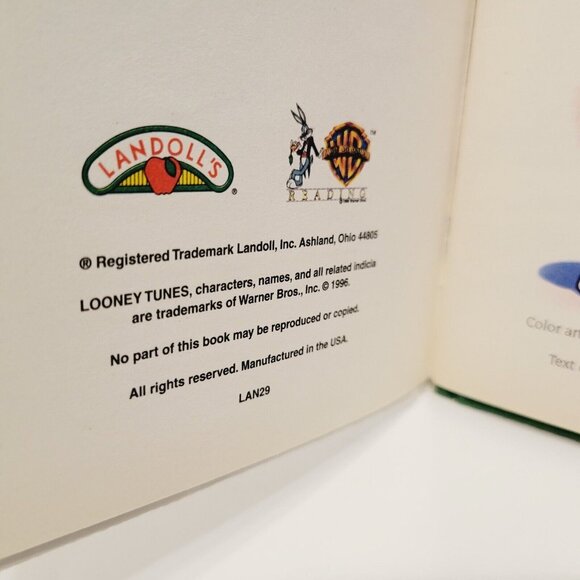 LANDOLL'S
®
WB
TM
READING
® Registered Trademark Landoll, Inc. Ashland, Ohio 44805
LOONEY TUNES, characters, names, and all related indicia
are trademarks of Warner Bros., Inc. © 1996.
No part of this book may be reproduced or copied.
All rights reserved. Manufactured in the USA.
LAN29
Color
Text